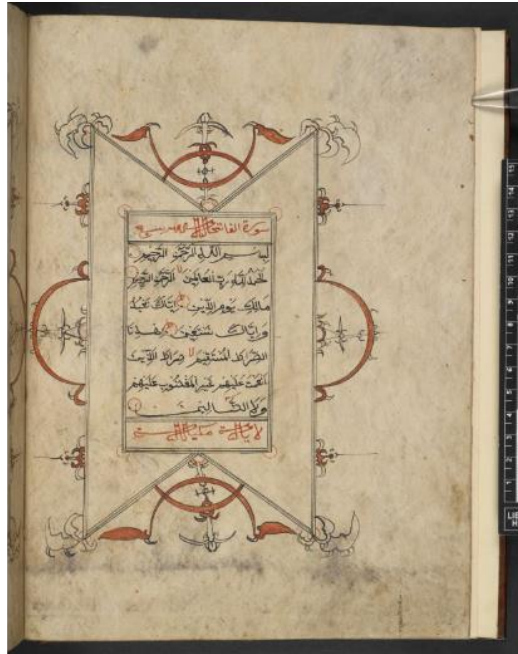 سورة الفاتحة
بسم الله الرحمن الرحيم
لحمد لله رب العالمين الرحمن الرحيم
مالك يوم الدين اياك نعبد
واياك نستعين اهدنا
الصراط المستقيم صراط الذين
انعمت عليهم غير المغضوب عليهم
ولا الضالين